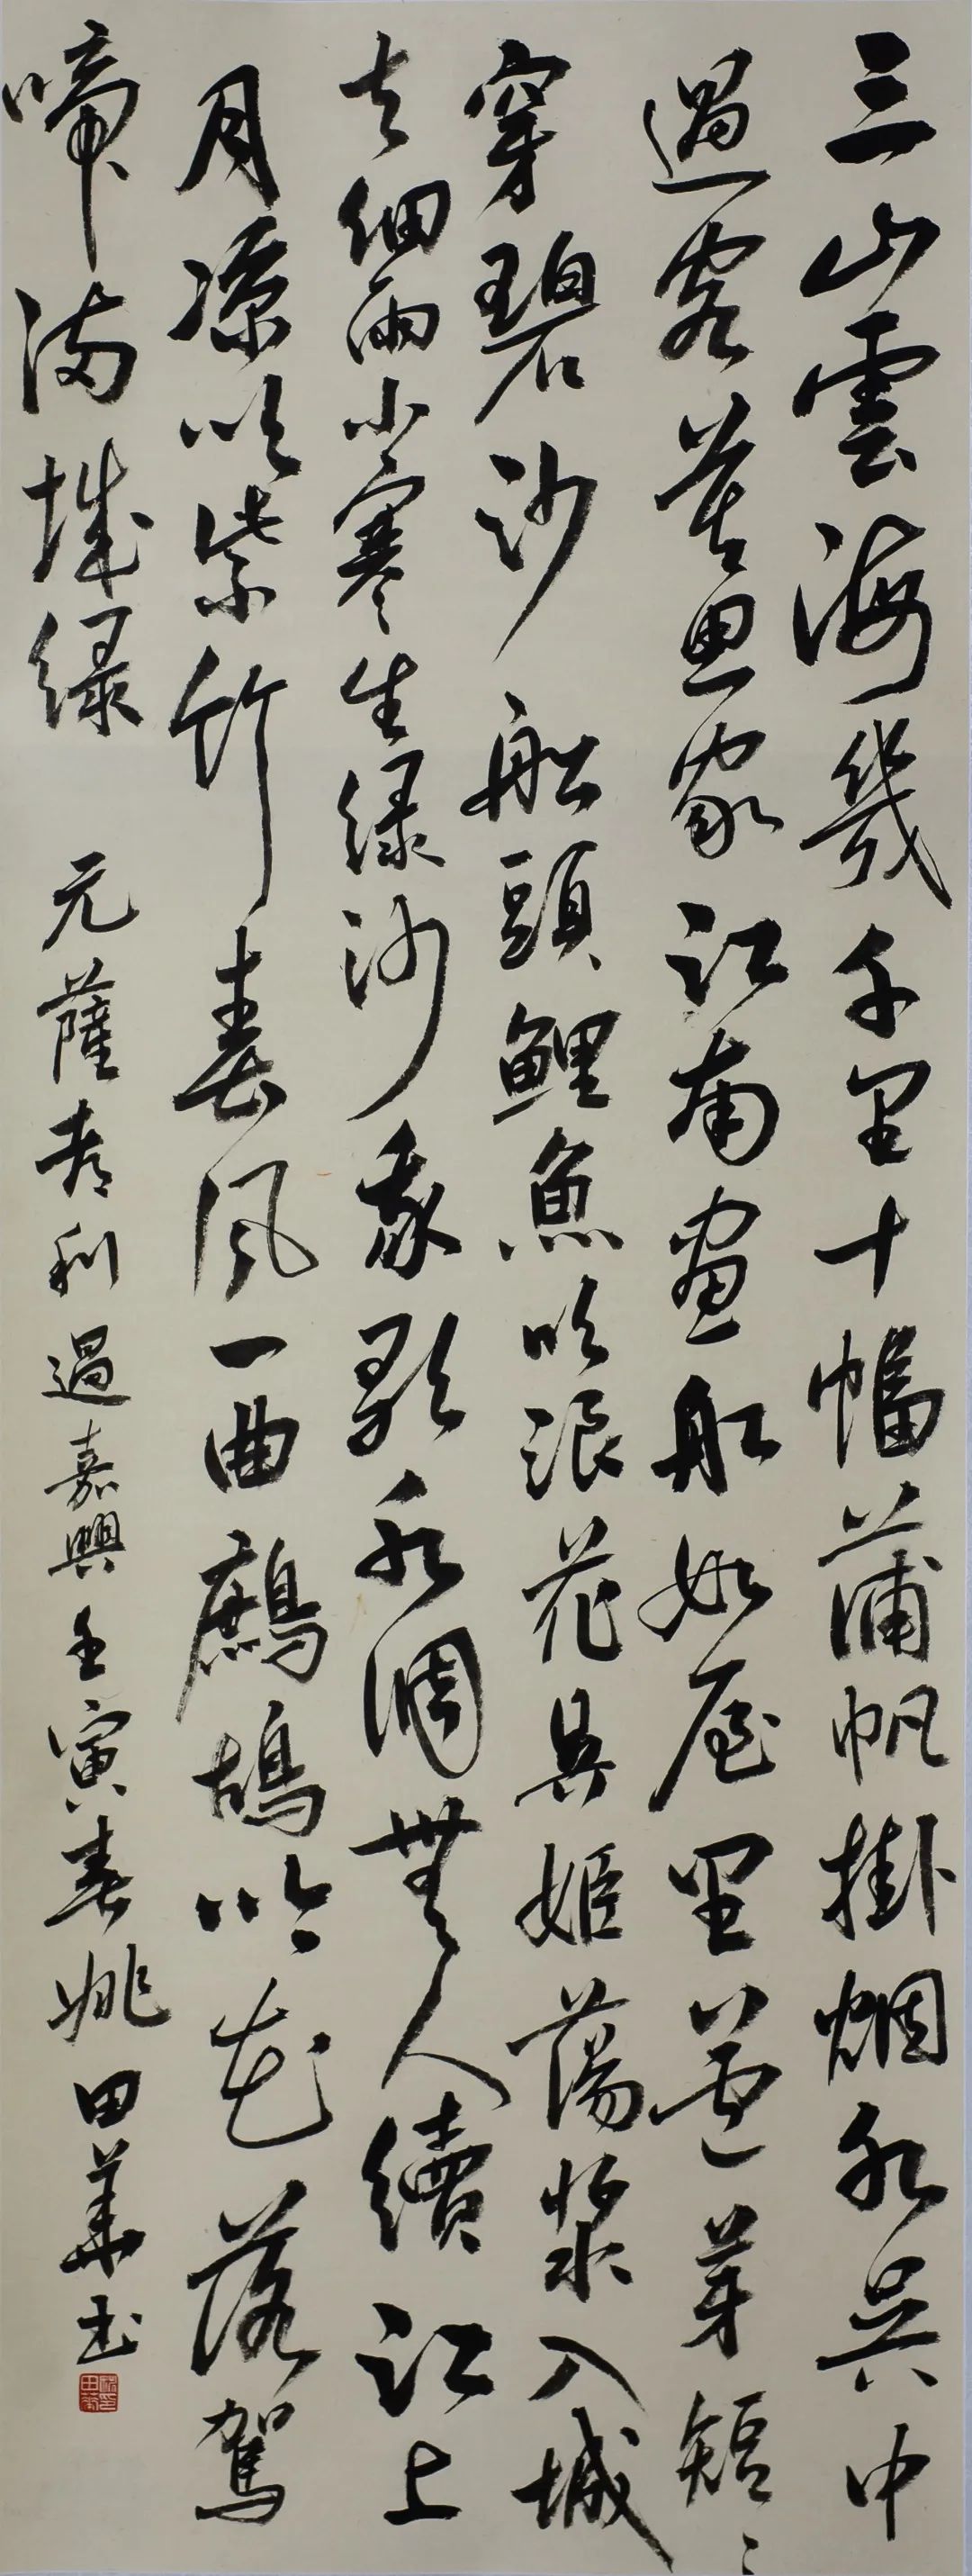 三山雲海幾千里十幅蒲帆掛烟水吳中
過客莫思家江南畫船如屋里蘆芽短々
穿碧沙船頭鯉魚吹浪花吳姬蕩槳入城
去細雨小寒生绿沙我歌水調無人續江上
月凉吹紫竹春風一曲鷓鴣吟花落鶯
啼满城绿
元薩都剌過嘉興壬寅春姚田華书